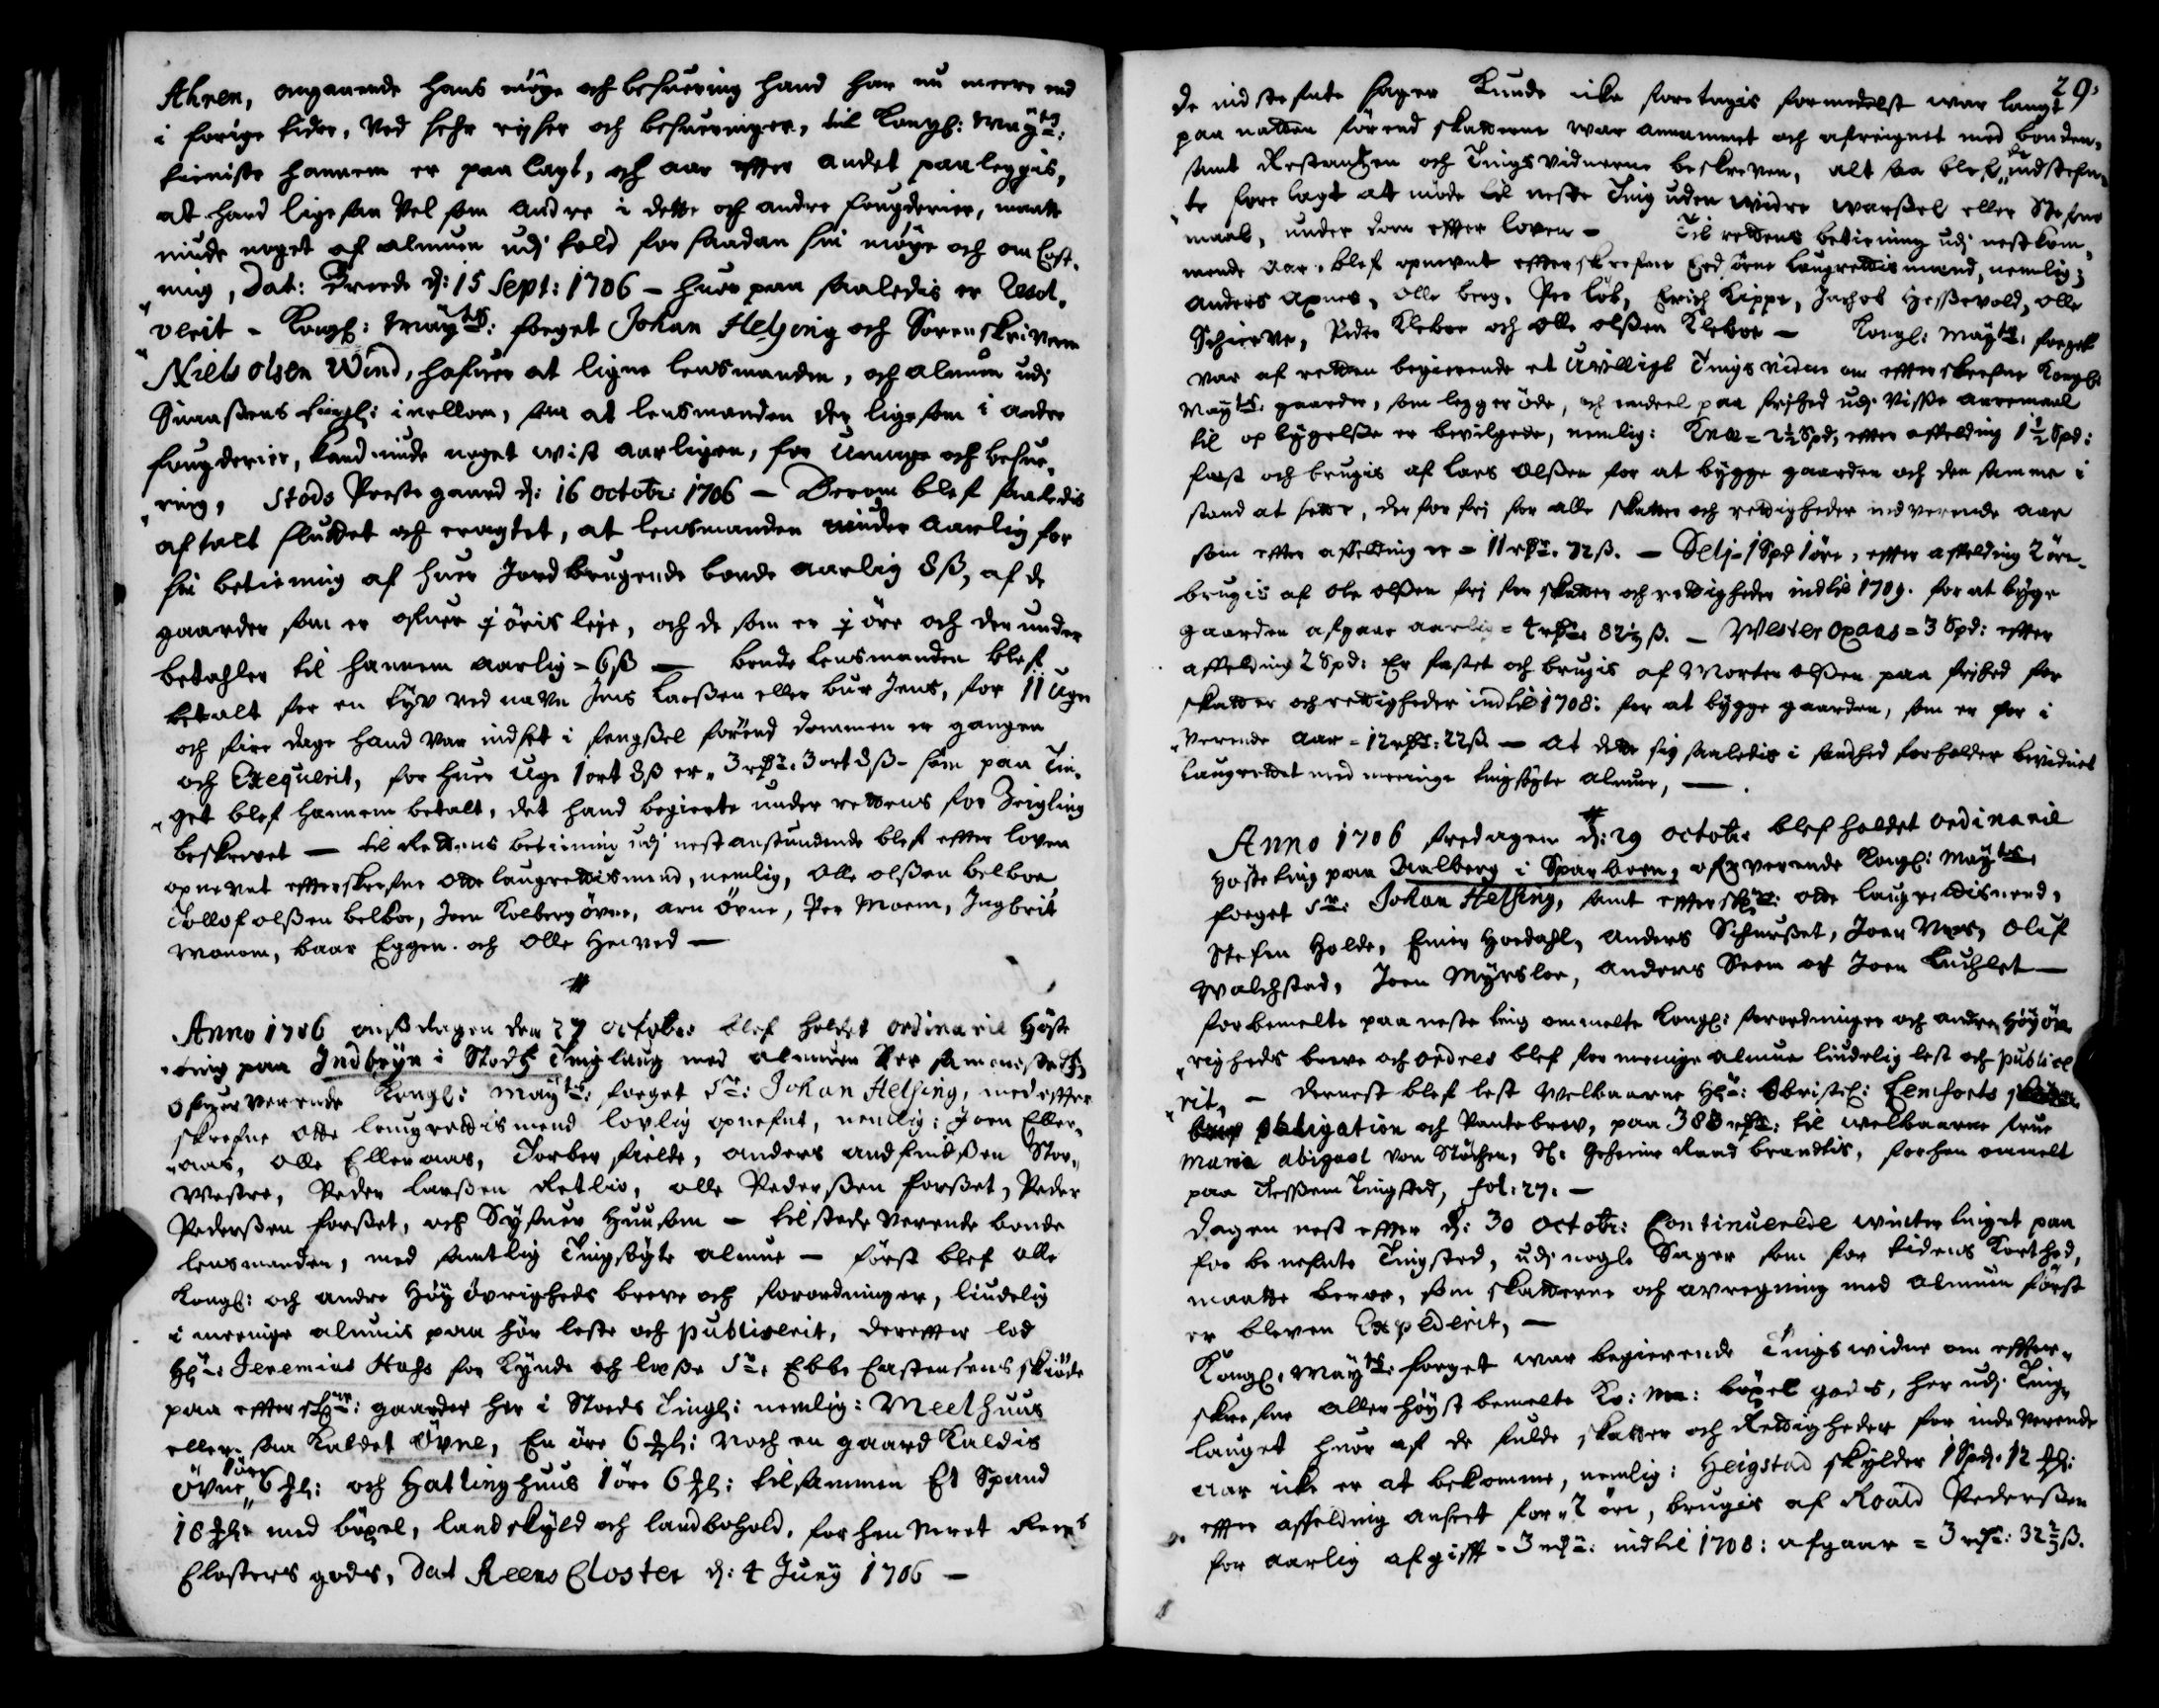 Ahren, angaaende hans möye och besuering hand har nu meere end
i forige tider, Ved sehr rejser och besueringer, til Kongl: Mayts:
tieniste hannem er paa lagt, och aar effter andet paaleggis,
at hand ligesaa Vel som Andre i dette och andre fougderier, maatte
niude noget af almuen udj told for saadan sin möye och om Cost,
ning, Dat: d: 15 Sept: 1706 – huor paa saaledis er Resol,
verit – Kongl: Mayts: foeget Johan Helsing och Sorenskriveren
Niels Olsen Wind, hafuer at ligne lensmanden, och almuen udj
Snaasens tingl: imellom, saa at lensmanden der ligesom i andre
fougderier, kand niude noget wist aarligen, for Umage och besue,
ring, Stods Prestegaard d: 16 octobr: 1706 – Derom blef saaledis
aftalt sluttet och eragtet, at lensmanden niuder Aarlig for
sin betiening af huer Jordbrugende bonde aarlig 8 ß, af de
gaarder som er ofuer j öris leje, och de som er j öre och derunder
betahler til hannem aarlig = 6 ß – bonde lensmanden blef
betalt for en tyv ved navn Jens Larßen eller bur Jens, for 11 Uger
och fire dage hand Var indsat i fengßel förend dommen er gangen
och Exequerit, for huer Uge 1 ort 8 ß er, 3 rdr. 3 ort 8 ß – som paa Tin,
get blef hannem betalt, det hand begierte under rettens for Zeigling
beskrevet – til Rettens betiening udj nest anstundende blef effter loven
opnevnt effterskrefne otte laugrettismend, nemlig, Olle olßen belboe,
Tollof olßen belboe, Joen Kolberg övne, arn övne, Per Moem, Ingbrit
Moenom, baar Eggen. och Olle Heived –
Anno 1706 onßdagen den 27 october blef holdet ordinarie Höste
ting paa Indbryn i Stods Tinglaug med almuen der sammested,
ofuer verende Kongl: Mayts: foeget Sr: Johan Helsing, med effter
skrefne otte laugrettismend lovlig opnefnt, nemlig: Joen Eller,
aas, Olle Elleraas, Torber fielde, anders andfindßen Stor,
Westre, Peder larßen Retlio, Olle Pederßen forßet, Peder
Pederßen forßet, och Syfuer Huusom – tilstede Verende bonde
lensmanden, med samtlig Tingsögte almue – först blef alle
Kongl: och andre Höy övrigheds breve och forordninger, liudelig
i meenige almuis paa hör leste och publiserit, dereffter lod
Hr: Jeremias Hags for Kynde och læße Sr: Ebbe Carstensens skiöde
paa effterschr: gaarder her i Stoeds Tingl: nemlig: Meelhuus
eller saa kaldet Övne, En öre 6 : noch en gaard kaldis
övne 1 öre 6 : och Hallinghuus 1 öre 6 : tilsammen Et Spand
18 : med böxel, landskyld och landbohold, forhen veret Reens
Closters gods, Dat Reens Closter d: 4 Juny 1706 –
29.
de indstefnte sager Kunde icke foretagis formedelst war langt
paa natten förend skatterne war annammet och afreignet med bonden,
samt Restantzen och Tings Vidnerne beskreven, alt saa blef de indstefn,
te fore lagt at möde til neste Ting uden widre warßel eller Stefne
maal, under dom effter loven – Til rettens betiening udj nestkom,
mende Aar, blef opnevnt effterskrefne Eedsorne laugrettismend, nemlig;
Anders Axnes, Olle berg, Per löb, Erich Kippe, Jachob Heßevold, Olle
Schierve, Peder Kleboe och Olle olßen Kleboe – Kongl: Mayts: foeget
Var af retten begierende et Uvilligt Tings vidne om effterskrefne Kongl:
Mayts: gaarder, som legger öde, och endeel paa frihed udj Visse aaremaal
til opbygelße er bevilgede, nemlig: = 2½ Spd: effter affelding 1½ Spd:
fæst och brugis af Lars Olßen for at bygge gaarden och den samme i
stand at sette, derfor fri for alle skatter och rettigheder indverende aar
som effter affelding er = 11 rdr. 72 ß. – Selj = 1 Spd 1 öre, effter affelding 2 öre
brugis af Ole olßen fri for skatter och rettigheder indtil 1709. for at byge
gaarden afgaar aarlig = 4 rdr. 82½ ß. – Wester Opaas = 3 Spd: effter
affelding 2 Spd: Er fæstet och brugis af Morten olßen paa frihed for
skatter och rettigheder indtil 1708: for at bygge gaarden, som er for i
Verende Aar = 12 rdr: 22 ß. – At dette sig saaledis i sandhed forholder bevidnet
laugrettet med meenige tingsögte almue, –
Anno 1706 fredagen d: 29 octobr blef holdet ordinarie
Hösteting paa Aalberg i Sparboen, ofververende Kongl: Mayts:
foeget Sr: Johan Helsing, samt effterschr: otte laugrettismend,
Stefen Holde, Einer Hoedahl, anders Schurßet, Joen Næs, Oluf
Walchstad, Joen Myrsloe, Anders Seem och Joen Luchlet –
forbemelte paa neste ting ommelte Kongl: forordninger och andre Höy öv
righeds breve och ordres blef for menige almue liudelig lest och public
rit, – dernest blef lest Welbaarne Hr: Obristl: Lemforts
obligation och Pantebrev, paa 388 rdr: til welbaarne frue
Maria Abigael von Stöchen, Sl: Geheime Raad brandtis, forhen ommelt
paa Tingsted, fol: 27: –
Dagen nest effter d: 30 octobr: Continuerede winter tinget paa
forbenefnte Tingsted, udj nogle Sager som for tidens korthed,
maatte beroe, som skatterne och avregning med almuen först
er bleven Expederit, –
Kongl. Mayts. foeget war begierende Tingswidne om effter,
skrefne allerhöyst bemelte Ko: Ma: böxel gods, her udj Ting,
lauget huor af de fulde skatter och Rettigheder for inde Verende
aar icke er at bekomme, nemlig: Heigstad skylder 1 Spd. 12 :
effter affelding anseet for 2 öre, brugis af Roald Pederßen
for aarlig afgifft = 3 rdr: indtil 1708: afgaar = 3 rdr: 32½ ß.